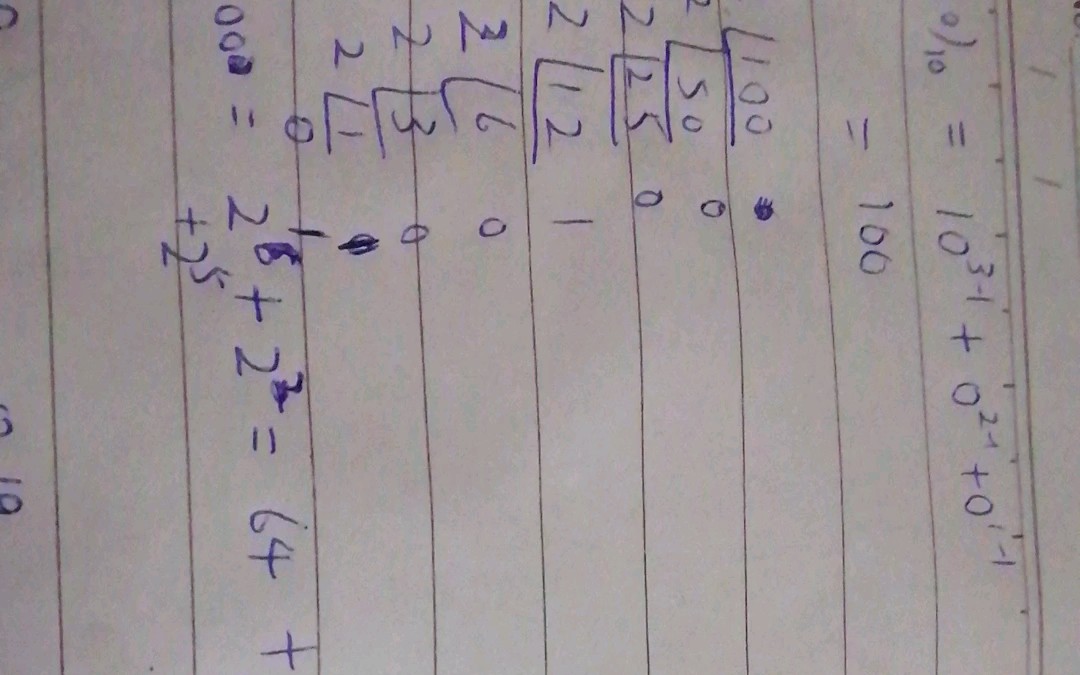 0)₁₀ = 10³⁻¹ + 0²⁻¹ + 0¹⁻¹
= 100
2 | 100
2 | 50 0
2 | 25 0
2 | 12 1
2 | 6 0
2 | 3 0
2 | 1
0 1
000 = 2⁶ + 2² = 64 +
+ 2⁵